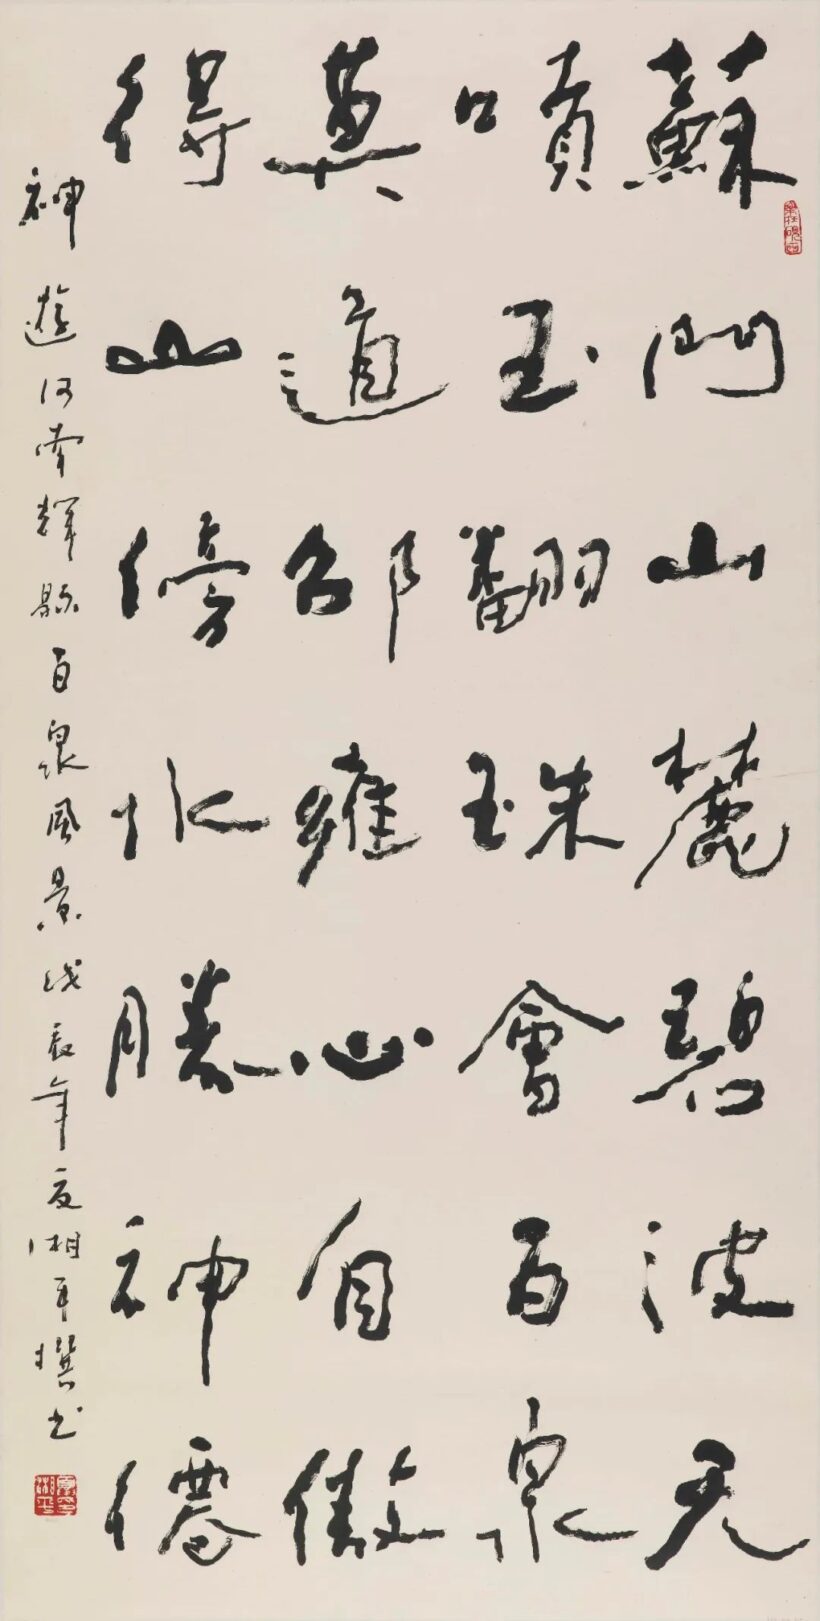 蘇門山麓碧波天
噴玉翻珠會百泉
莫道邵雍心自傲
得山傍水勝神僊
神遊河南輝縣百泉風景戊辰年夏湘平撰书